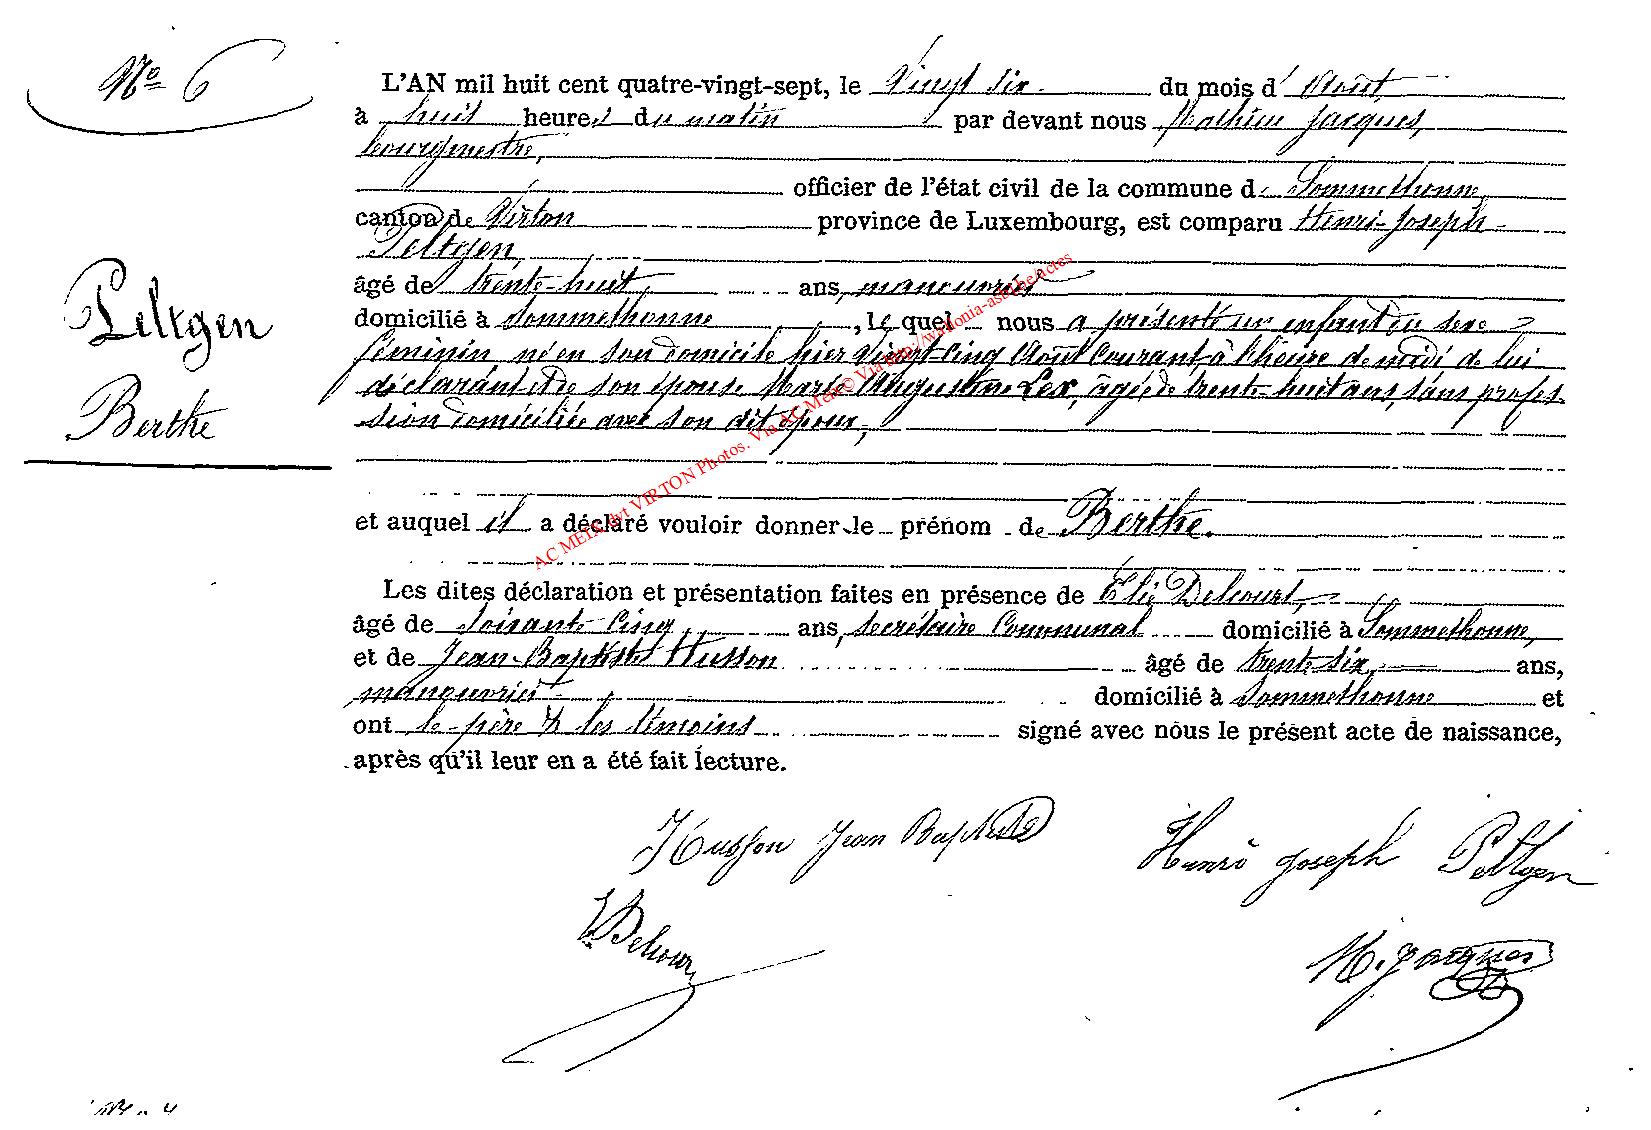 No 6
L'AN mil huit cent quatre-vingt-sept, le Vingt six du mois d' Août
à huit heures du matin par devant nous Mathieu Jacques,
bourgmestre,
officier de l'état civil de la commune de Sommethonne,
canton de Virton province de Luxembourg, est comparu Henri-Joseph
Peltgen,
âgé de trente-huit, ans, manouvrier
domicilié à Sommethonne, lequel nous a présenté un enfant du sexe
féminin, né en son domicile hier Vingt Cinq Août Courant, à l'heure de midi de lui
déclarant et de son épouse Marie Augustine Lex, âgée de trente-huit ans, sans profes
sion domiciliée avec son dit époux,
et auquel il a déclaré vouloir donner le prénom de Berthe.
Peltgen
Berthe
Les dites déclaration et présentation faites en présence de Elie Delcourt,
âgé de soixante Cinq, ans, secrétaire Communal domicilié à Sommethonne,
et de Jean-Baptiste Husson âgé de trente six, ans,
manouvrier domicilié à Sommethonne et
ont le père & les témoins signé avec nous le présent acte de naissance,
après qu'il leur en a été fait lecture.
Husson Jean Baptiste Henri Joseph Peltgen
E Delcour
M. Jacques
AC METX dvt VIRTON Photos. Via AC Metx © Via http://wallonia-asbl.be/actes